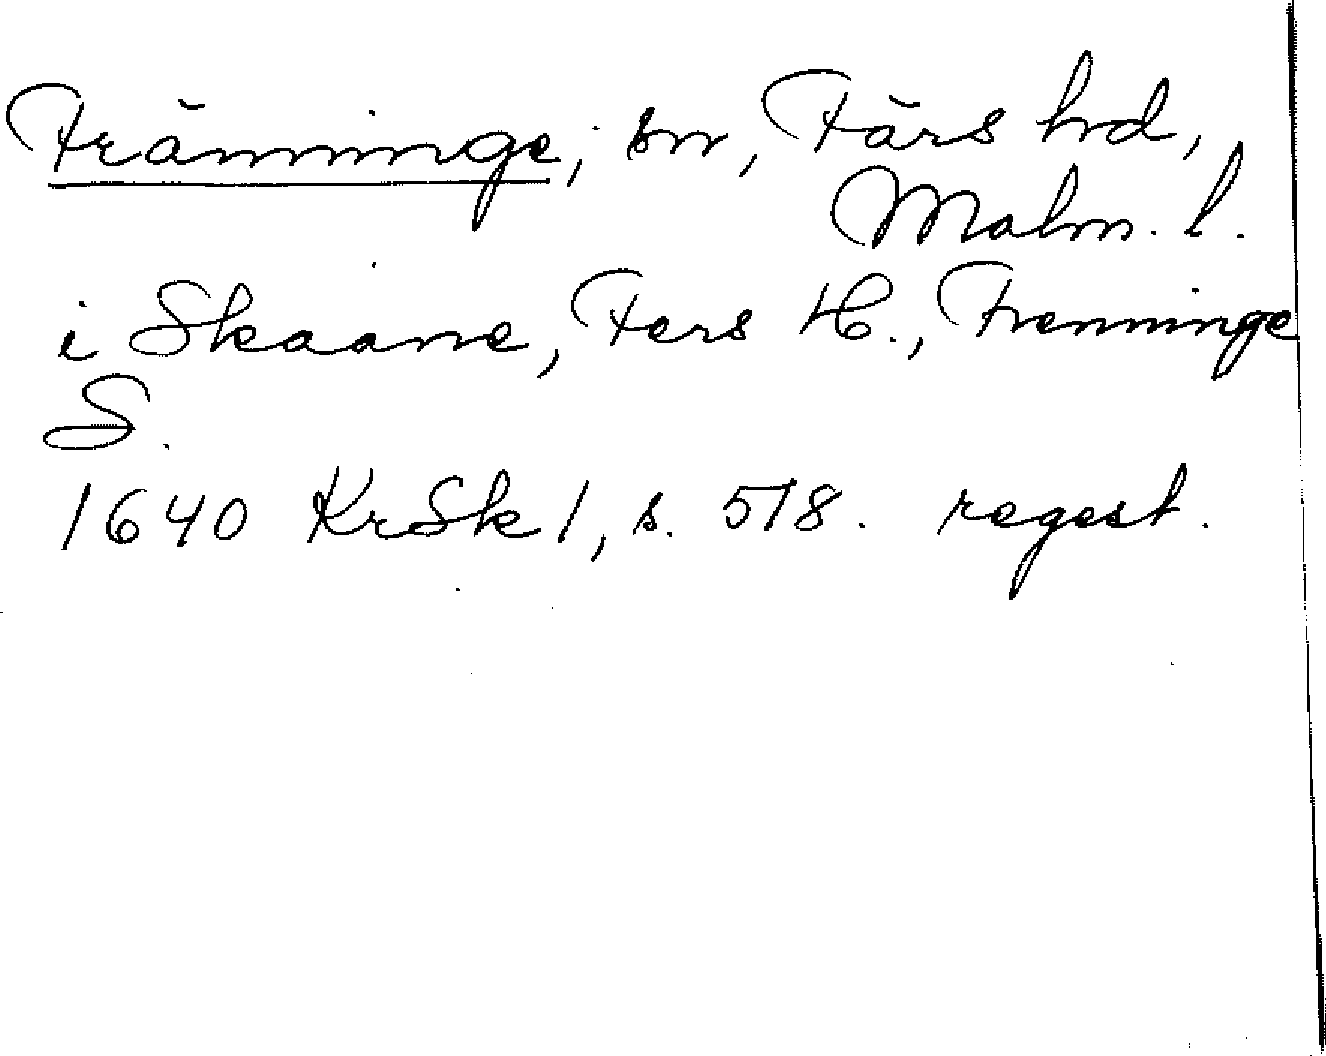 Fränninge, sn, Färs hd,
Malm. l.
i Skaane, Fers H., Frenninge
S.
1640 KrSk 1, s. 518. regest.